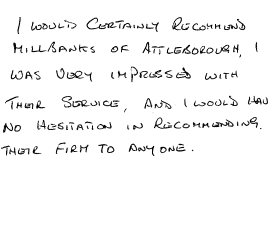 I WOULD CERTAINLY RECOMMEND
MILLBANKS OF ATTLEBOROUGH, I
WAS VERY IMPRESSED WITH
THEIR SERVICE, AND I WOULD HAV
NO HESITATION IN RECOMMENDING.
THEIR FIRM TO ANYONE.